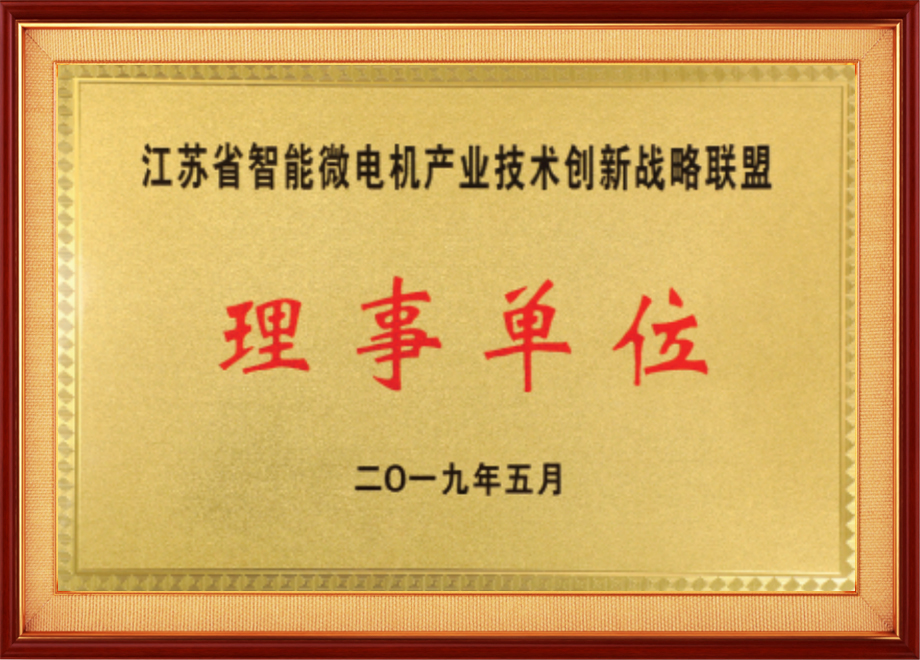 江苏省智能微电机产业技术创新战略联盟
理事单位
二〇一九年五月